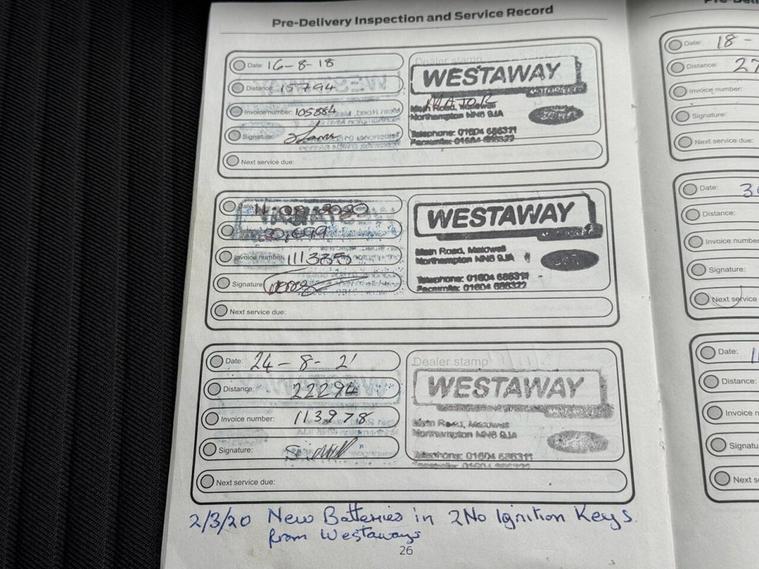 Pre-Delivery Inspection and Service Record
Date: 16-8-18
Distance: 15794
Invoice number: 105884
Signature:
Next service due:
WESTAWAY
MOTORS
MAJOR
Main Road,
Northampton NN6 9JA
Telephone: 01604 686311
Facsimile: 01604 686322
Invoice number:
Signature:
Next service due:
WESTAWAY
Main Road,
Northampton NN6 9JA
Telephone: 01604 686311
Facsimile: 01604 686322
Date: 24-8-21
Distance: 22294
Invoice number: 113978
Signature:
Next service due:
Dealer stamp
WESTAWAY
Main Road,
Northampton NN6 9JA
Telephone: 01604 686311
2/3/20 New Batteries in 2No Ignition Keys
from Westaways
26
Date: 18-
Distance: 27
Invoice number:
Signature:
Next service due:
Date: 3
Distance:
Invoice number
Signature:
Next service
Date:
Distance:
Invoice n
Signatu
Next s